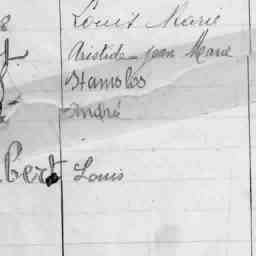 Louis Marie
Aristide Jean Marie
Stanislas
André
bert Louis